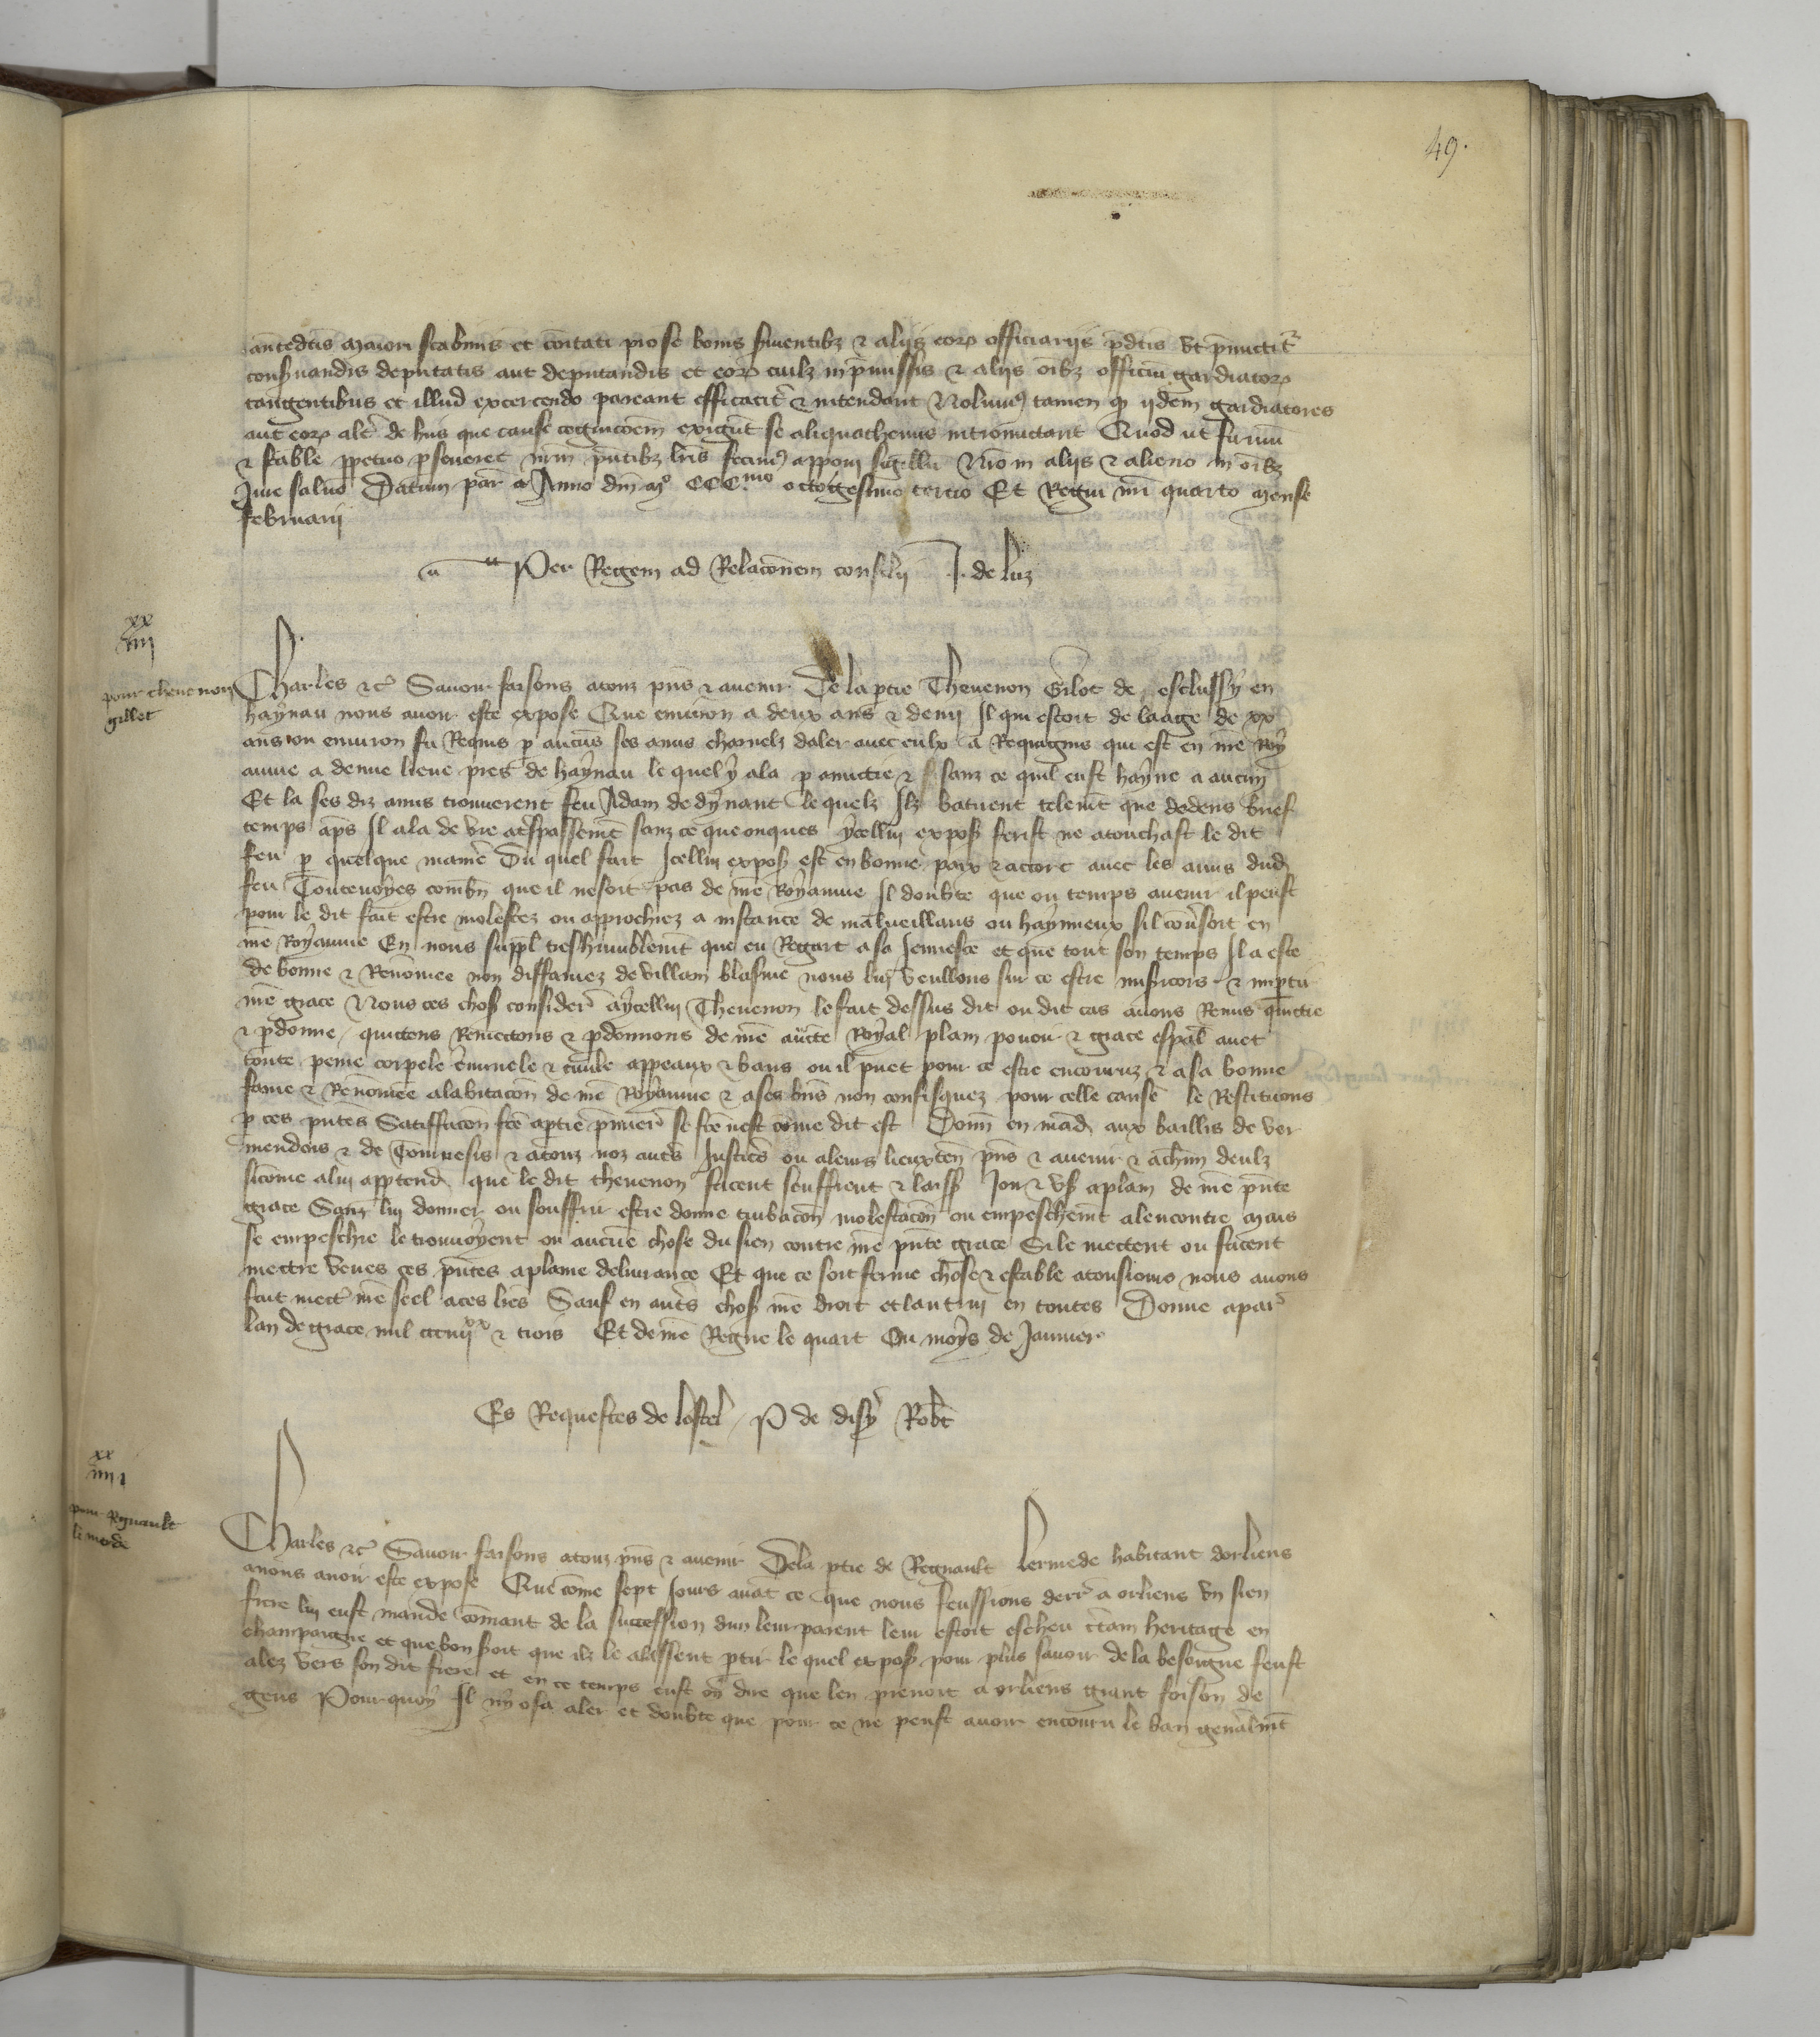 49.
antedc̄is maiori scabinis et cōitati pro se bonis iuuentibz & alijs eorꝝ officiariis p̄dc̄is vt p̄mittit᷑
conßuandis deputatis aut deputandis et eorꝝ cuilz in p̄missis & alijs oībz officiū gardiatorꝝ
tangentibus et illud excercendo pareant efficacit̄ & intendant Nolumꝰ tamen qͥ ijdem gardiatores
aut eorꝝ alt̄ de hiis que cause cognicōem exigūt se aliquathenus intromittant Quod ut firmū
& stabile ꝑpetuo ꝑseueret nr̄m p̄ntibz lr̄is fecimꝰ apponi sigillū Nr̄o in alijs & alieno in oībz
Jure saluo Datum par̄ Anno dn̄i mº CCC.mo octogesimo tercio Et Regni nr̄i quarto mense
februarij
Per Regem ad Relacōnem consilij J. de luz
xx
iiij
pour theuenon
gillet
Charles &c̄ Sauoir faisons a touz pn̄s & auenir De la ꝑtie Theuenon Gilot de esclussy en
haynau nous auoir este expose Que enuiron a deux ans & demj Il qui estoit de laage de xx
ans ou enuiron fu Requis ꝑ aucūs ses amis charnelz daler auec eulx a Requignis qui est en nr̄e Roy
aume a demie lieue pres de haynau le quel y ala ꝑ amictie & sanz ce quil eust hayne a aucun
Et la ses diz amis trouuerent feu Adam de dynant le quelz Ilz batirent telemt̄ que dedens brief
temps ap̄s Il ala de vie a tr̄spassement sanz ce que onques ycellui exposß ferist ne atouchast le dit
feu ꝑ quelque manīe Du quel fait Icellui exposß est en bonne paix & accort auec les amis dud
feu Touteuoyes combn̄ que il ne soit pas de nr̄e Royaume Il doubte que ou temps auenir il peust
pour le dit fait estre molestez ou approchiez a instance de malueillans ou hayneux sil conūsoit en
nr̄e Royaume En nous suppl̄ treshumblemt̄ que eu Regart a sa Jeunesce et que tout son temps Il a este
de bonne & Renōmee non diffamez de villain blasme nous lui veullons sur ce estre misicors & imꝑtir
nr̄e grace Nous ces choß consider̄ a ycellui Theuenon le fait dessus dit ou dit cas auons Remis quictie
& ꝑdonne / quictons Remectons & ꝑdonnons de nr̄e auct̄e Royal plain pouoir & grace esp̄al auec
toute peine corpele c̄iminele & ciuile appeaux & bans ou il puet pour ce estre encouruz & a sa bonne
fame & Renōmee a labitacōn de nr̄e Royaume & a ses bn̄s non confisquez pour celle cause le Restituons
ꝑ ces pn̄tes Satisffacōn fc̄e a ꝑtie p̄mier̄ se fc̄e nest cōme dit est Donn̄ en mād aux baillis de ver
mendois & de Tournesis & a touz noz autrs̄ Justicrs̄ ou a leurs lieuxten̄ pn̄s & auenir & a chūn deulz
sicōme a lui app̄tend que le dit theuenon facent seuffrent & laissß Joir & vß a plain de nr̄e pn̄te
grace Sanz lui donner ou souffrir estre donne turbacōn molestacōn ou empeschemt̄ a lencontre mais
se empeschie le trouuoyent ou aucūe chose du sien contre nr̄e pn̄te grace Si le mettent ou facent
mettre veues ces pn̄tes a plaine deliurance Et que ce soit ferme chose & estable a tousiours nous auons
fait mectr̄ nr̄e seel a ces lr̄es Sauf en autrs̄ choß nr̄e droit et lautrui en toutes Donne a par̄
lan de grace mil ccciiijxx & trois Et de nr̄e Regne le quart Ou moys de Januier
Es Requestes de lostel P de disy Robt̄
xx
iiij j
pour Regnault
lermede
Charles &c̄ Sauoir faisons a touz pn̄s & auenir De la ꝑtie de Regnault lermede habitant dorliens
a nous auoir este expose Que cōme sept Jours auāt ce que nous feussions derr̄ a orliens vn sien
frere lui eust mande cōmant de la succession dun leur parent leur estoit escheu c̄tain heritage en
champaigne et que bon ßoit que ilz le alassent ꝑtir le quel exposß pour plus sauoir de la besoigne feust
alez vers son dit frere et en ce temps eust oy dire que len prenoit a orliens grant foison de
gens Pour quoy Il ny osa aler et doubte que pour ce ne peust auoir encouru le ban gen̄almt̄